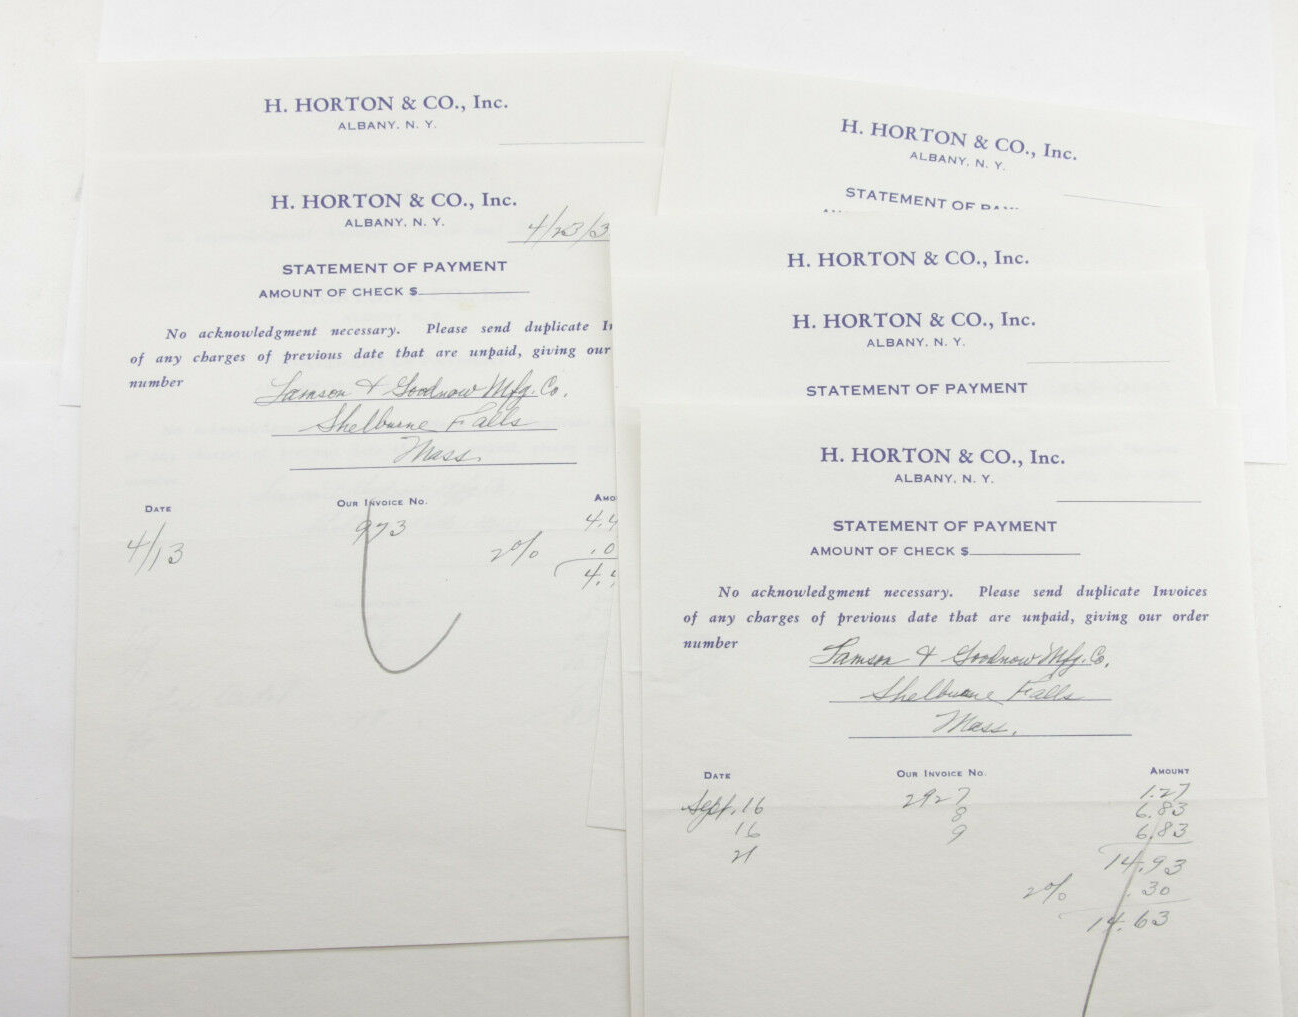 H. HORTON & CO., Inc.
ALBANY, N. Y.
H. HORTON & CO., Inc.
ALBANY, N. Y.
4/23/3
STATEMENT OF PAYMENT
AMOUNT OF CHECK $
No acknowledgment necessary. Please send duplicate
of any charges of previous date that are unpaid, giving our
number
Lamson & Goodnow Mfg. Co.
Shelburne Falls
Mass.
DATE OUR INVOICE No.
4/13 973 4.4
2% .0
4.
H. HORTON & CO., Inc.
ALBANY, N. Y.
STATEMENT OF
H. HORTON & CO., Inc.
H. HORTON & CO., Inc.
ALBANY, N. Y.
STATEMENT OF PAYMENT
H. HORTON & CO., Inc.
ALBANY, N. Y.
STATEMENT OF PAYMENT
AMOUNT OF CHECK $
No acknowledgment necessary. Please send duplicate Invoices
of any charges of previous date that are unpaid, giving our order
number
Lamson & Goodnow Mfg. Co.
Shelburne Falls
Mass.
DATE OUR INVOICE No. AMOUNT
Sept. 16 2927 1.27
16 8 6.83
21 9 6.83
14.93
2% .30
14.63